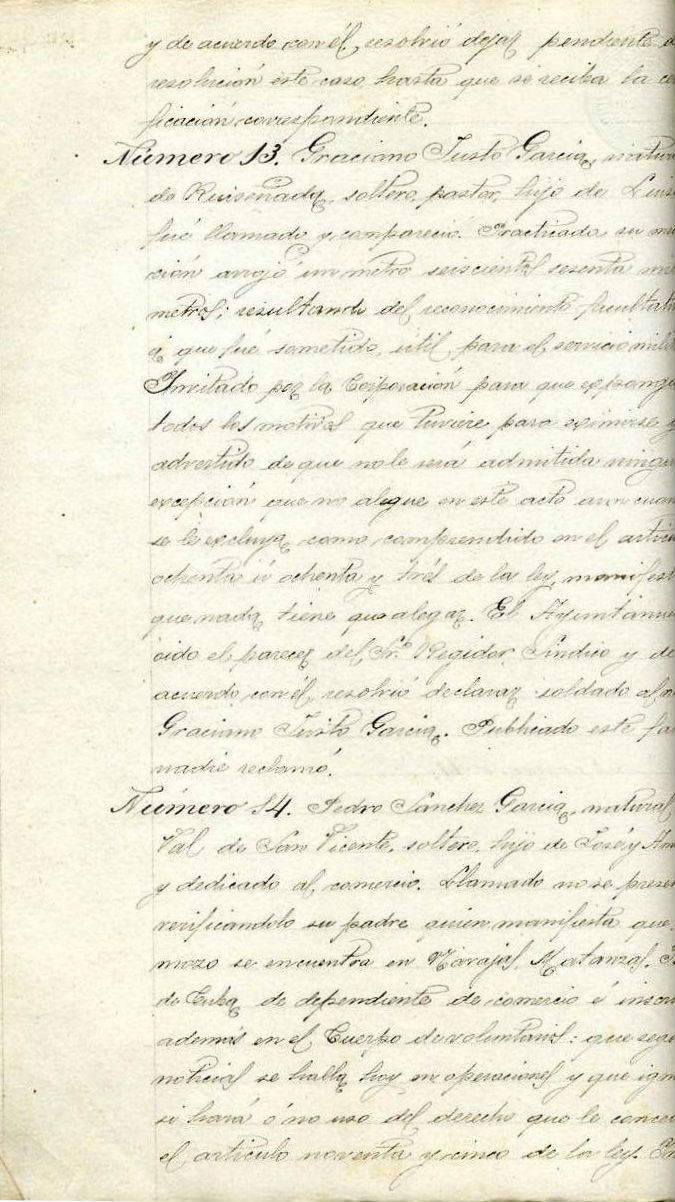 y de acuerdo con él resolvió dejar pendiente
resolución este caso, hasta que se reciba la
ficación correspondiente.
Número 13. Graciano Justo Garcia, natur
de Ruiseñada, soltero, pastor, hijo de Luis
fué llamado y compareció. Practicada su m
ción arrojó un metro seiscientos sesenta mi
metros; resultando del reconocimiento facultati
á que fué sometido, útil para el servicio mili
Invitado por la Corporación para que exponga
todos los motivos que tuviere para eximirse y
advertido de que no le será admitida ningu
excepción que no alegue en este acto aun cuan
se le excluya como comprendido en el artícu
ochenta ú ochenta y trés de la ley, manifest
que nada tiene que alegar. El Ayuntamie
oido el parecer del Sr. Regidor Síndico y de
acuerdo con él resolvió declarar soldado al
Graciano Justo Garcia. Publicado este fa
nadie reclamó.
Número 14. Pedro Sánchez Garcia, natural
Val de San Vicente, soltero, hijo de José y
y dedicado al comercio. Llamado no se presen
verificandolo su padre quien manifiesta que
mozo se encuentra en Navajas, Matanzas,
de Cuba de dependiente de comercio é inscri
además en el Cuerpo de voluntarios: que segú
noticias se halla hoy en operaciones y que igno
si hará ó no uso del derecho que le conce
el artículo noventa y cinco de la ley.